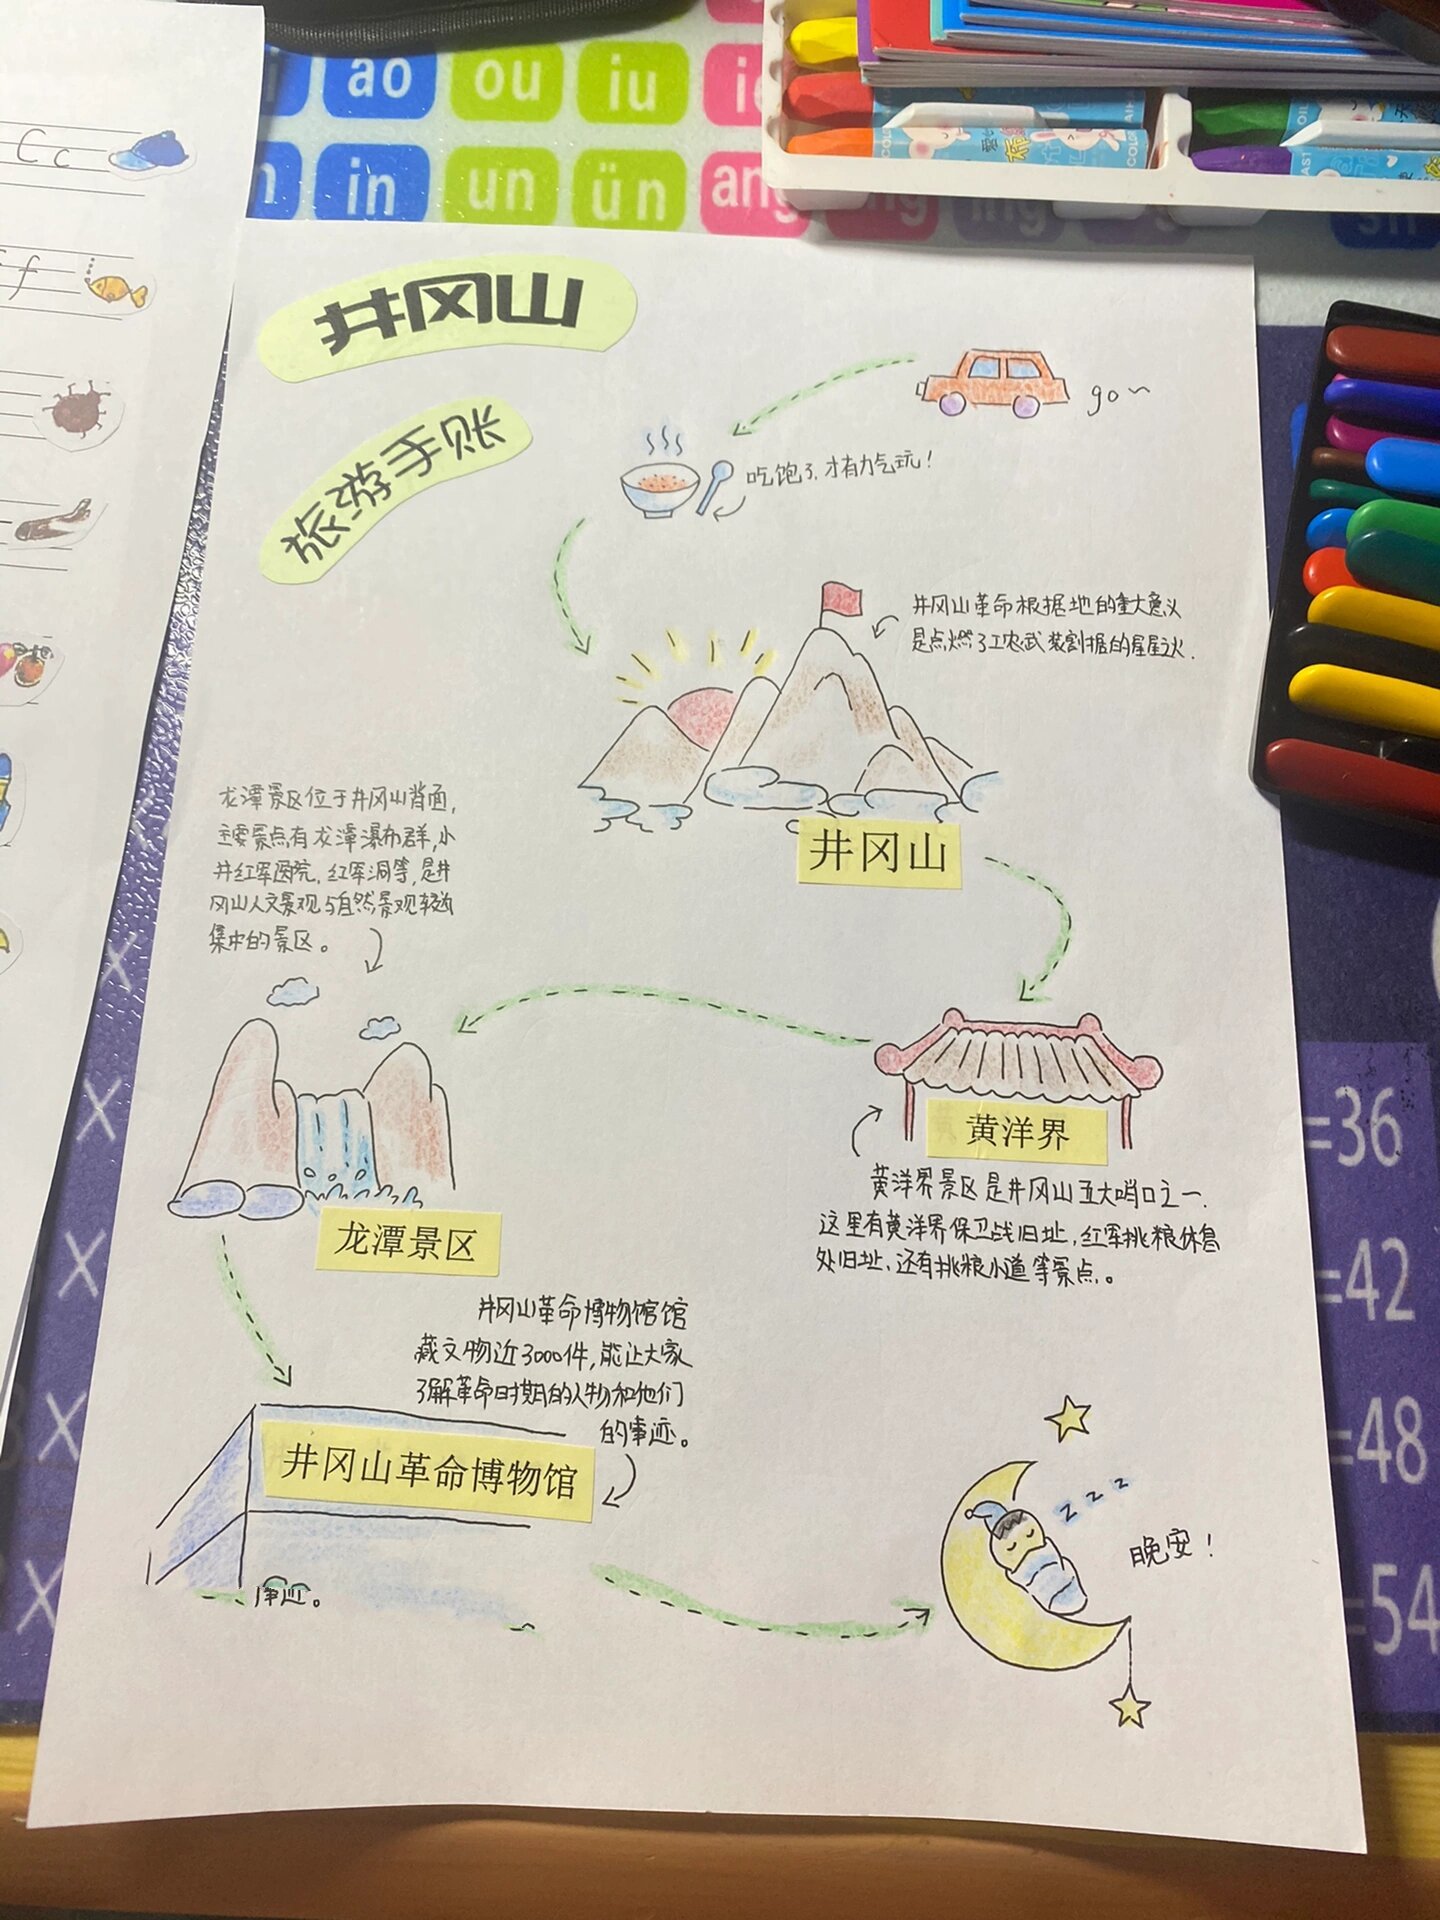 ao
ou
iu
in
un
ün
ang
Cc
f
井冈山
旅游手账
go~
吃饱了,才有力气玩!
井冈山革命根据地的重大意义
是点燃了工农武装割据的星星之火.
井冈山
龙潭景区位于井冈山背面,
主要景点有龙潭瀑布群,小
井红军医院,红军洞等,是井
冈山人文景观与自然景观较为
集中的景区。
黄洋界
黄洋界景区是井冈山五大哨口之一.
这里有黄洋界保卫战旧址,红军挑粮休息
处旧址,还有挑粮小道等景点。
龙潭景区
井冈山革命博物馆馆
藏文物近3000件,能让大家
了解革命时期的人物和他们
的事迹。
井冈山革命博物馆
z z z
晚安!
=36
=42
=48
=54